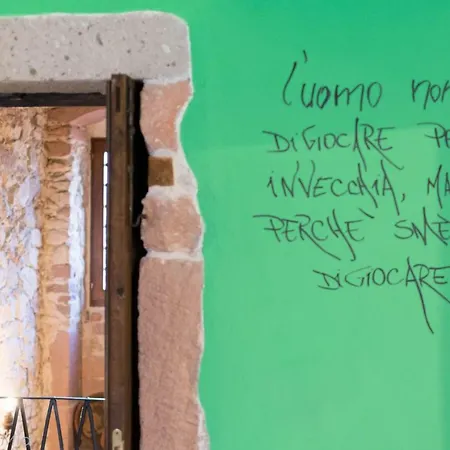 l'uomo non
DI GIOCARE PE
INVECCHIA, MA
PERCHÈ SME
DI GIOCARE